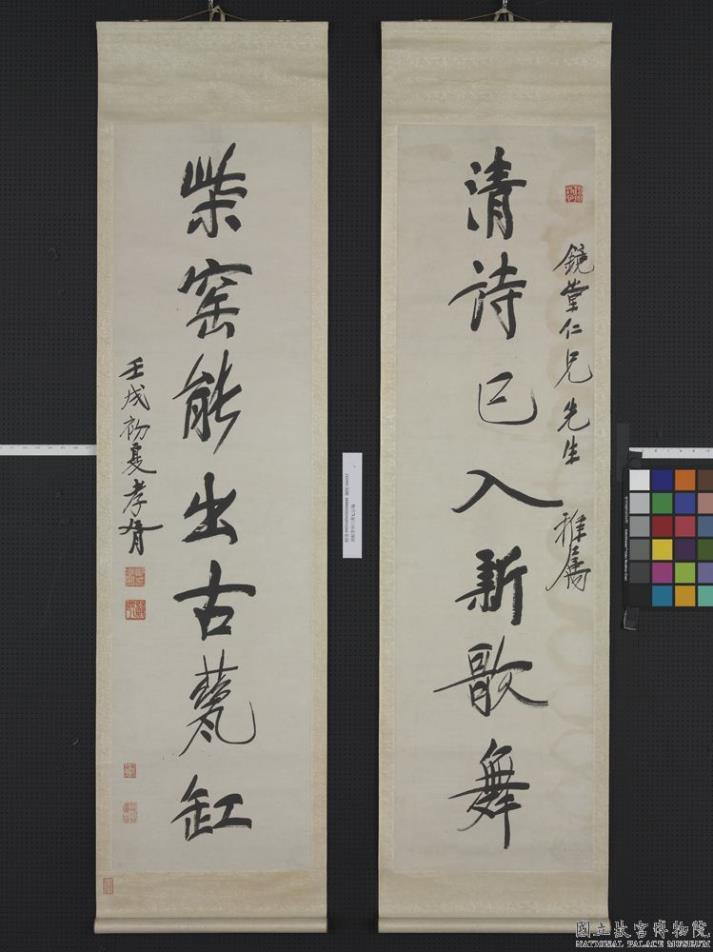 清詩已入新歌舞
鏡堂仁兄先生 雅屬
柴窰能出古甆缸
壬戌初夏孝胥
國立故宮博物院
NATIONAL PALACE MUSEUM